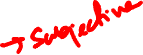 → Subjective